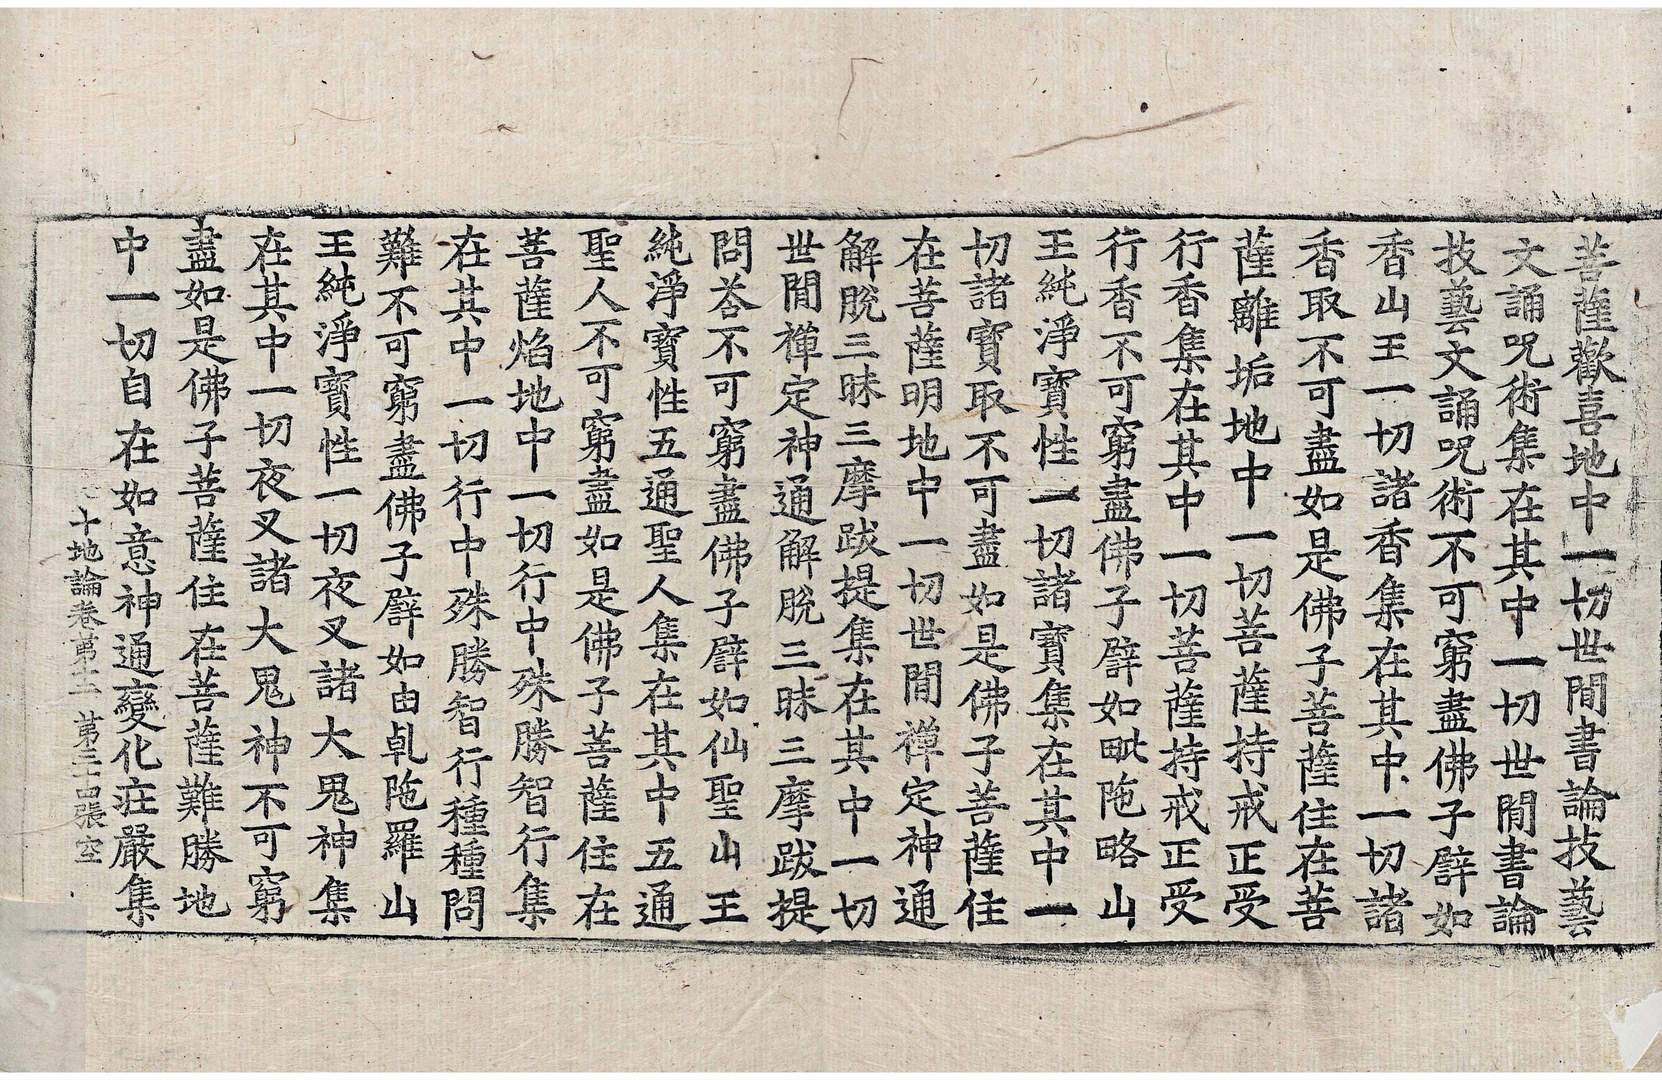 菩薩歡喜地中一切世間書論技藝
文誦呪術集在其中一切世間書論
技藝文誦呪術不可窮盡佛子譬如
香山王一切諸香集在其中一切諸
香取不可盡如是佛子菩薩住在菩
薩離垢地中一切菩薩持戒正受
行香集在其中一切菩薩持戒正受
行香不可窮盡佛子譬如毗陁略山
王純淨寶性一切諸寶集在其中一
切諸寶取不可盡如是佛子菩薩住
在菩薩明地中一切世間禪定神通
解脫三昧三摩跋提集在其中一切
世間禪定神通解脫三昧三摩跋提
問荅不可窮盡佛子譬如仙聖山王
純淨寶性五通聖人集在其中五通
聖人不可窮盡如是佛子菩薩住在
菩薩焰地中一切行中殊勝智行集
在其中一切行中殊勝智行種種問
難不可窮盡佛子譬如由乹陁羅山
王純淨寶性一切夜叉諸大鬼神集
在其中一切夜叉諸大鬼神不可窮
盡如是佛子菩薩住在菩薩難勝地
中一切自在如意神通變化莊嚴集
十地論卷第十二 第三十四張 空